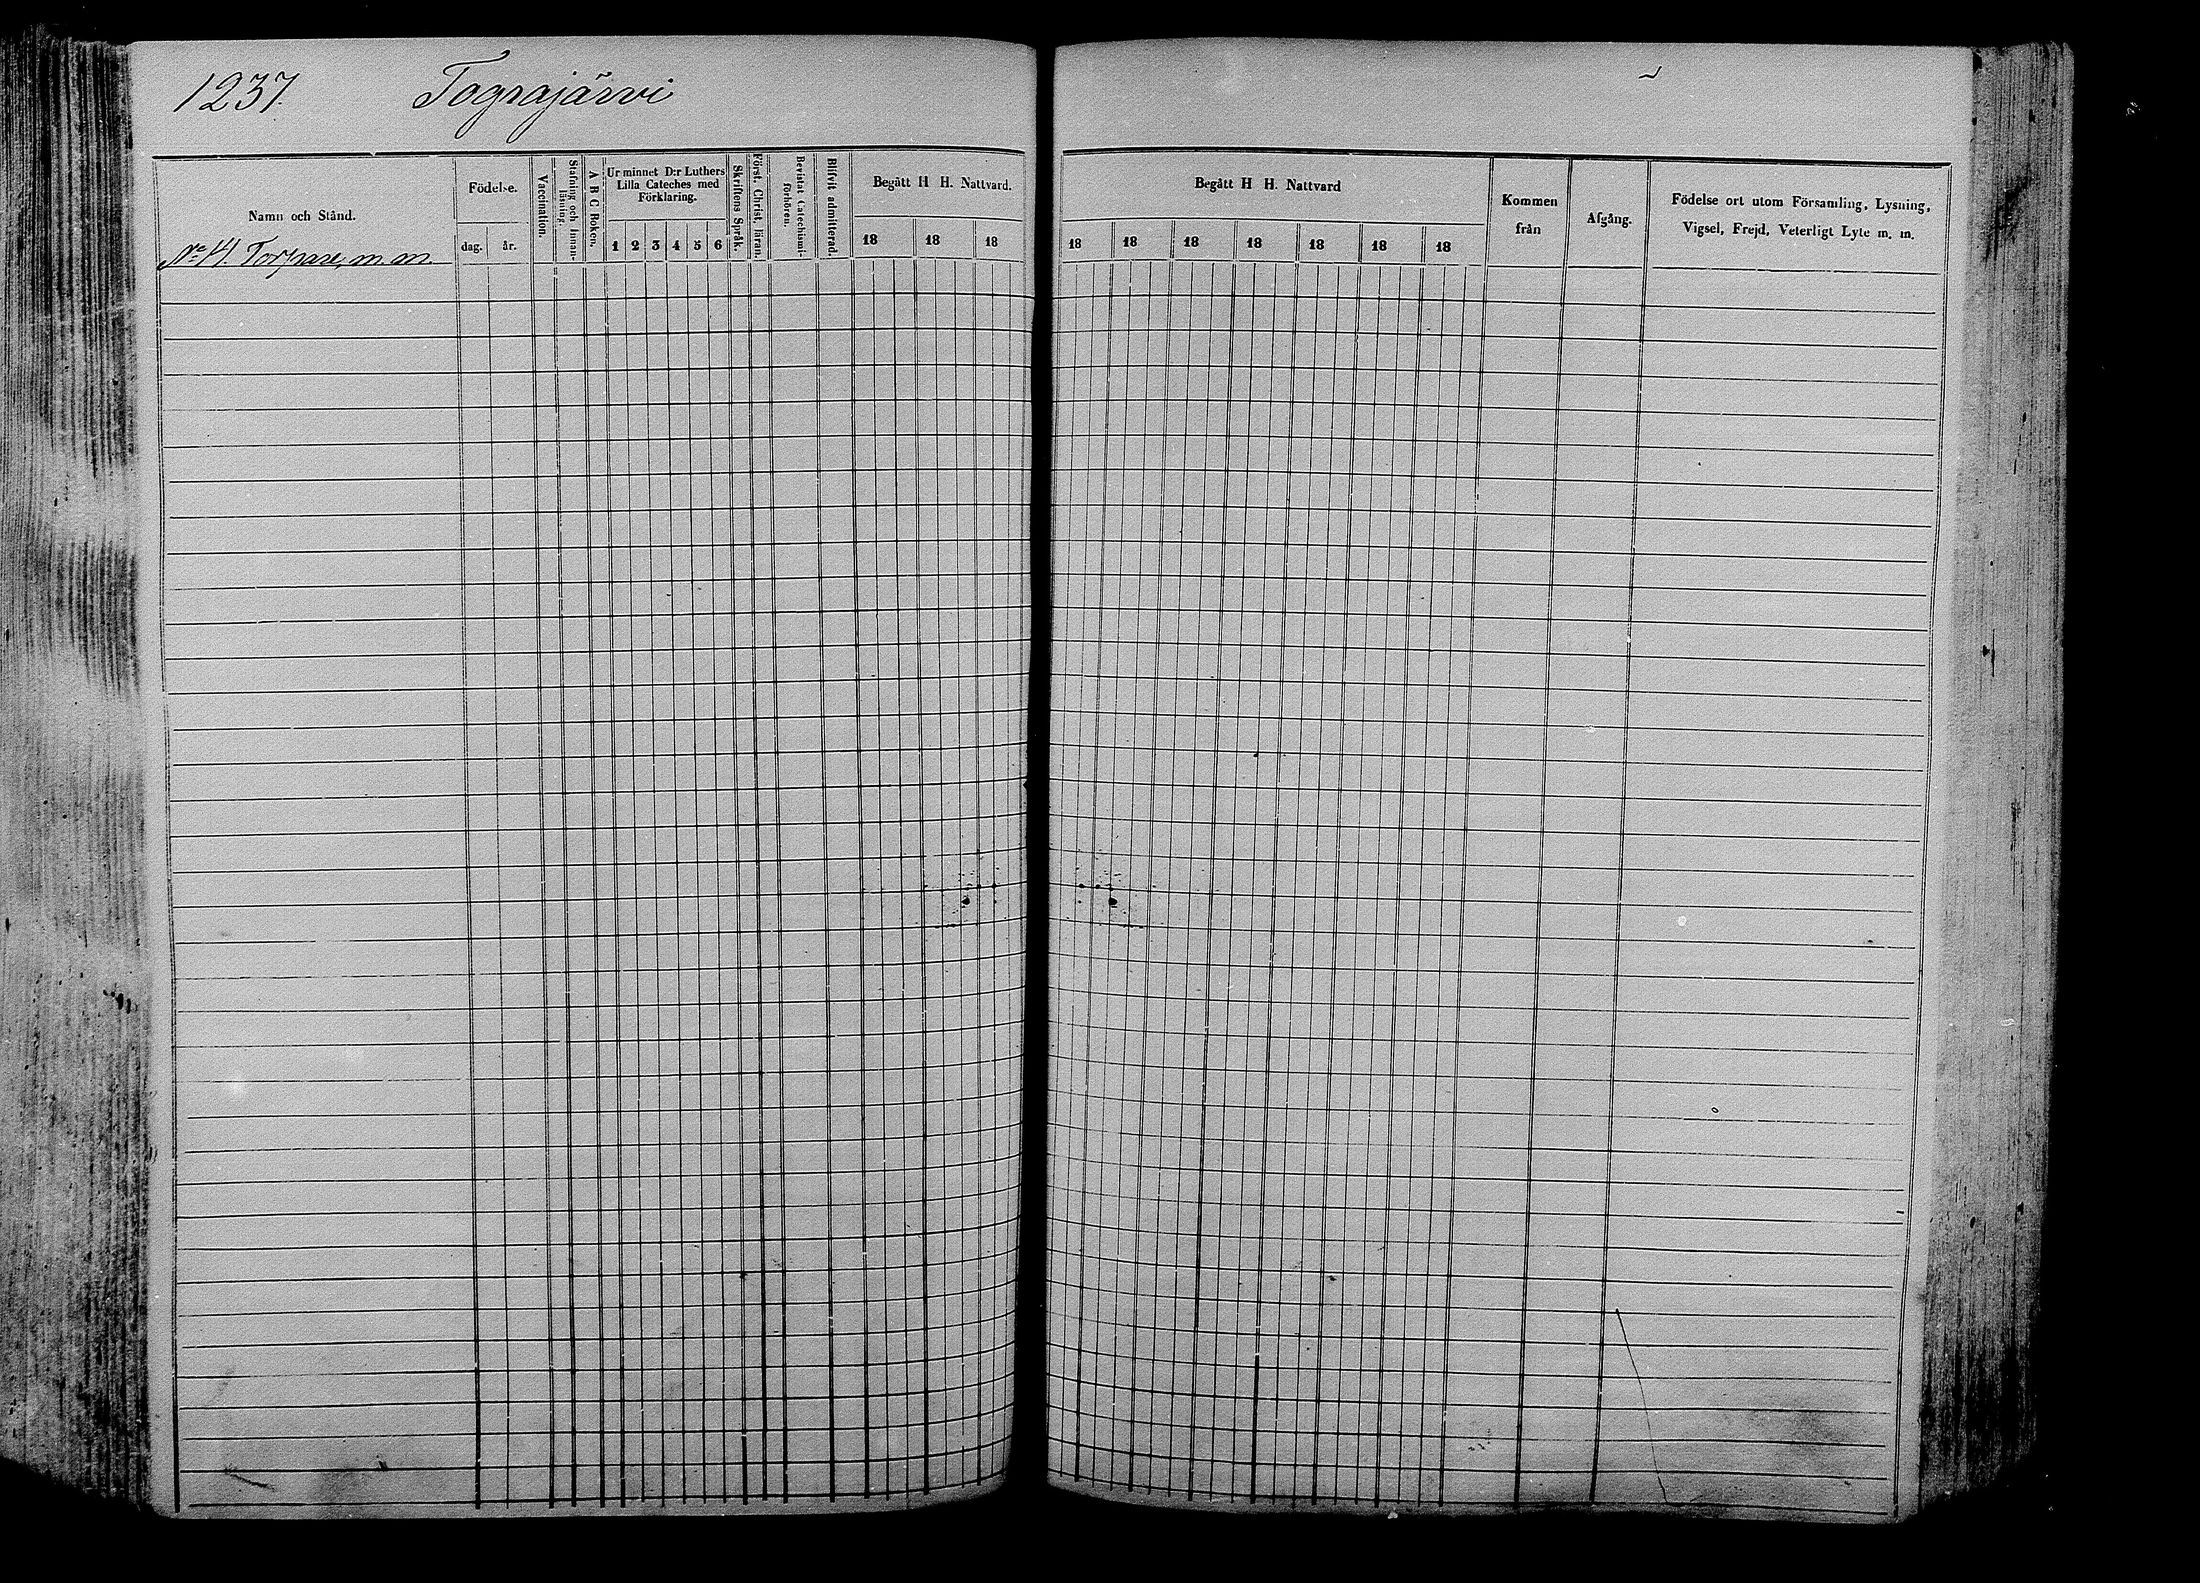 1237. Tograjärvi
Namn och Stånd.
Födelse.
dag. år.
Vaccination.
Stafning och Innan-
läsning.
A B C Boken.
Ur minnet D:r Luthers
Lilla Cateches med
Förklaring.
1 2 3 4 5 6
Skriftens Språk.
Först. Christ. läran.
Bevistat Catechismi-
förhören.
Blifvit admitterad.
Begått H H. Nattvard.
18 18 18
No 14. Torpare, m. m.
Begått H H. Nattvard
18 18 18 18 18 18 18
Kommen
från
Afgång.
Födelse ort utom Församling, Lysning,
Vigsel, Frejd, Veterligt Lyte m. m.